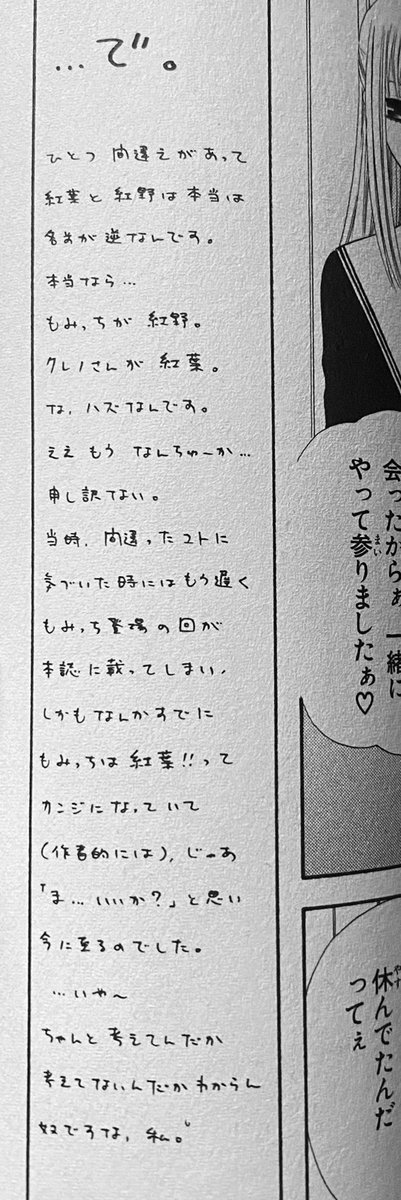 …で。
ひとつ 間違えがあって
紅葉と 紅野は本当は
名前が 逆なんです。
本当なら…
もみっちが 紅野。
クレノさんが 紅葉。
な、ハズなんです。
ええ もう なんちゅーか…
申し訳ない。
当時、間違ったコトに
気づいた時にはもう遅く
もみっち登場の回が
本誌に載ってしまい、
しかもなんかすでに
もみっちは 紅葉!!って
カンジになっていて
(作者的には)、じゃあ
「ま…いいか?」と思い
今に至るのでした。
…いや〜
ちゃんと 考えてんだか
考えてないんだか わからん
奴ですな、私。
会ったからぁ 一緒に
やって参りましたぁ♡
まい
休んでたんだ
やす
ってぇ